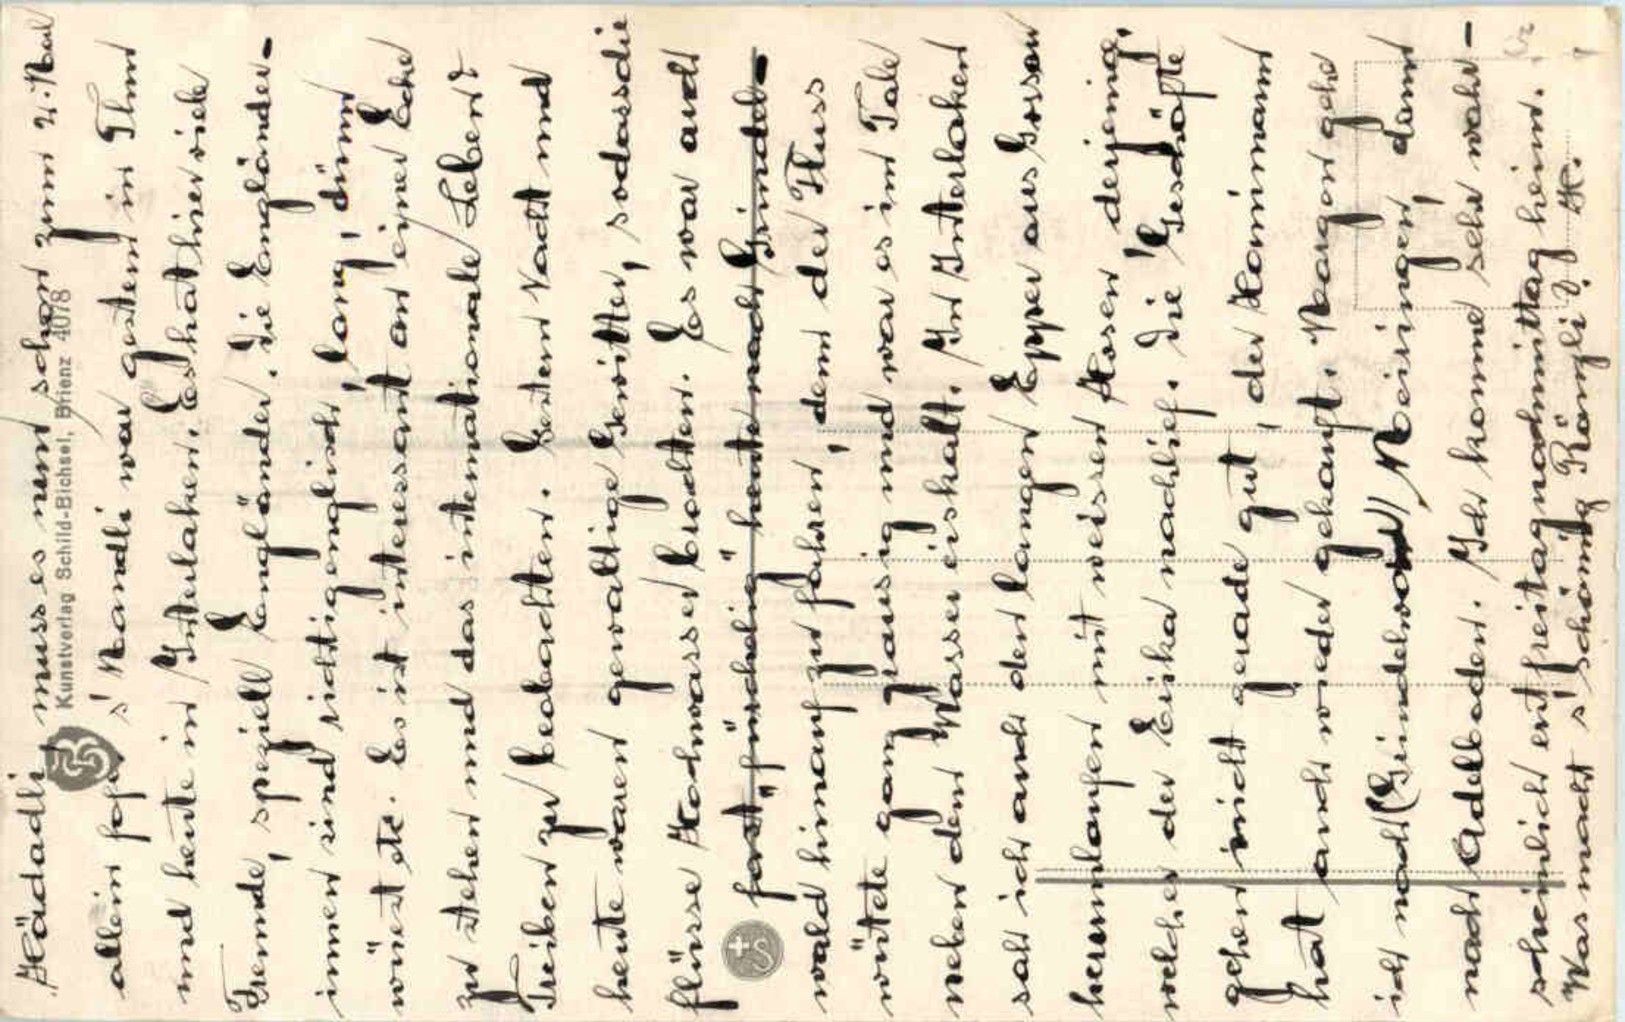 Hädadli muss es nun schon zum 2. Mal
allein s'Mandli war gestern in Thun
und heute in Interlaken. Es hat hier viele
Fremde, speziell Engländer. Die Engländer-
innen sind richtig englisch, lang, dünn
wüest etc. Es ist interessant an einer Ecke
zu stehen und das internationale Leben &
Treiben zu beobachten. Gestern Nacht und
heute waren gewaltige Gewitter, sodass die
Flüsse Hochwasser brachten. Es war auch
fast heute nach Grindel-
wald hinauf zu fahren, denn der Fluss
wütete ganz grausig und war es im Tale
neben dem Wasser eiskalt. In Interlaken
sah ich auch den langen Epper aus Gossau
herumlaufen mit weissen Hosen, derjenige,
welcher der Erika nachlief. Die Geschäfte
gehen nicht gerade gut, der Hanimann
hat auch wieder gekauft. Morgen gehe
ich noch (Grindelwald) Meiringen, dann
nach Adelboden. Ich komme sehr wahr-
scheinlich erst freitagnachmittag heim.
Was macht s'schöönig Römzli? H.
Kunstverlag Schild-Bichsel, Brienz 4078